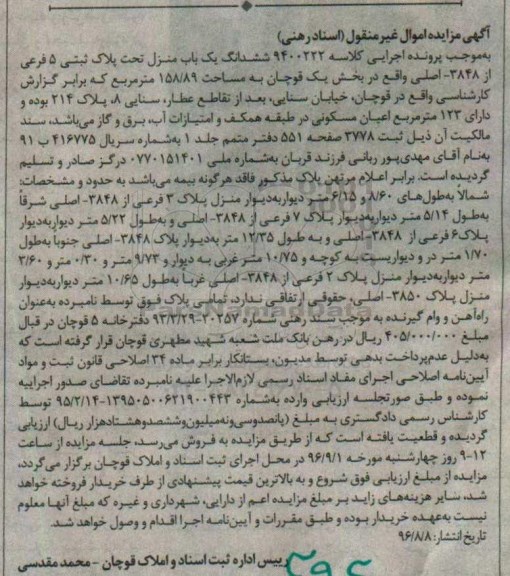 آگهی مزایده اموال غیر منقول (اسناد رهنی)
به‌موجب پرونده اجرایی کلاسه ۹۴۰۰۲۲۲ ششدانگ یک باب منزل تحت پلاک ثبتی ۵ فرعی
از ۳۸۴۸- اصلی واقع در بخش یک قوچان به مساحت ۱۵۸/۸۹ مترمربع که برابر گزارش
کارشناسی واقع در قوچان، خیابان سنایی، بعد از تقاطع عطار، سنایی ۸، پلاک ۲۱۴ بوده و
دارای ۱۲۳ مترمربع اعیان مسکونی در طبقه همکف و امتیازات آب، برق و گاز می‌باشد، سند
مالکیت آن ذیل ثبت ۳۷۷۸ صفحه ۵۵۱ دفتر متمم جلد ۱ به‌شماره سریال ۴۱۶۷۷۵ ب ۹۱
به‌نام آقای مهدی‌پور ربانی فرزند قربان به‌شماره ملی ۰۷۷۰۱۵۱۴۰۱ درگز صادر و تسلیم
گردیده است. برابر اعلام مرتهن پلاک مذکور فاقد هرگونه بیمه می‌باشد به حدود و مشخصات:
شمالاً به‌طول‌های ۸/۶۰ و ۶/۱۵ متر دیواربه‌دیوار منزل پلاک ۳ فرعی از ۳۸۴۸- اصلی شرقاً
به‌طول ۵/۱۴ متر دیواربه‌دیوار پلاک ۷ فرعی از ۳۸۴۸- اصلی و به‌طول ۵/۲۲ متر دیواربه‌دیوار
پلاک۶ فرعی از ۳۸۴۸-اصلی و به طول ۱۲/۳۵ متر به‌دیوار پلاک ۳۸۴۸- اصلی جنوباً به‌طول
۱/۷۰ متر در و دیواریست به کوچه و ۱۰/۷۵ متر غربی به دیوار و ۹/۷۳ متر و ۰/۳۰ متر و ۳/۶۰
متر دیواربه‌دیوار منزل پلاک ۲ فرعی از ۳۸۴۸- اصلی غرباً به‌طول ۱۰/۶۵ متر دیواربه‌دیوار
منزل پلاک ۳۸۵۰- اصلی، حقوقی ارتفاقی ندارد، تمامی پلاک فوق توسط نامبرده به‌عنوان
راهن و وام گیرنده به موجب سند رهنی شماره ۲۰۲۵۷-۹۳/۲/۲۹ دفترخانه ۵ قوچان در قبال
مبلغ ۴۰۵/۰۰۰/۰۰۰ ریال در رهن بانک ملت شعبه شهید مطهری قوچان قرار گرفته است که
به‌دلیل عدم‌پرداخت بدهی توسط مدیون، بستانکار برابر ماده ۳۴ اصلاحی قانون ثبت و مواد
آیین‌نامه اصلاحی اجرای مفاد اسناد رسمی لازم‌الاجرا علیه نامبرده تقاضای صدور اجراییه
نموده و طبق صورتجلسه ارزیابی وارده به‌شماره ۱۳۹۵۰۵۰۰۶۲۱۹۰۰۴۴۳-۹۵/۲/۱۴ توسط
کارشناس رسمی دادگستری به مبلغ (پانصدوسی‌ونه‌میلیون‌وششصدوهشتادهزار ریال) ارزیابی
گردیده و قطعیت یافته است که از طریق مزایده به فروش می‌رسد، جلسه مزایده از ساعت
۹-۱۲ روز چهارشنبه مورخه ۹۶/۹/۱ در محل اجرای ثبت اسناد و املاک قوچان برگزار می‌گردد،
مزایده از مبلغ ارزیابی فوق شروع و به بالاترین قیمت پیشنهادی از طرف خریدار فروخته خواهد
شد، سایر هزینه‌های زاید بر مبلغ مزایده اعم از دارایی، شهرداری و غیره که مبلغ آنها معلوم
نیست به‌عهده خریدار بوده و طبق مقررات و آیین‌نامه اجرا اقدام و وصول خواهد شد.
تاریخ انتشار: ۹۶/۸/۸
رییس اداره ثبت اسناد و املاک قوچان - محمد مقدسی